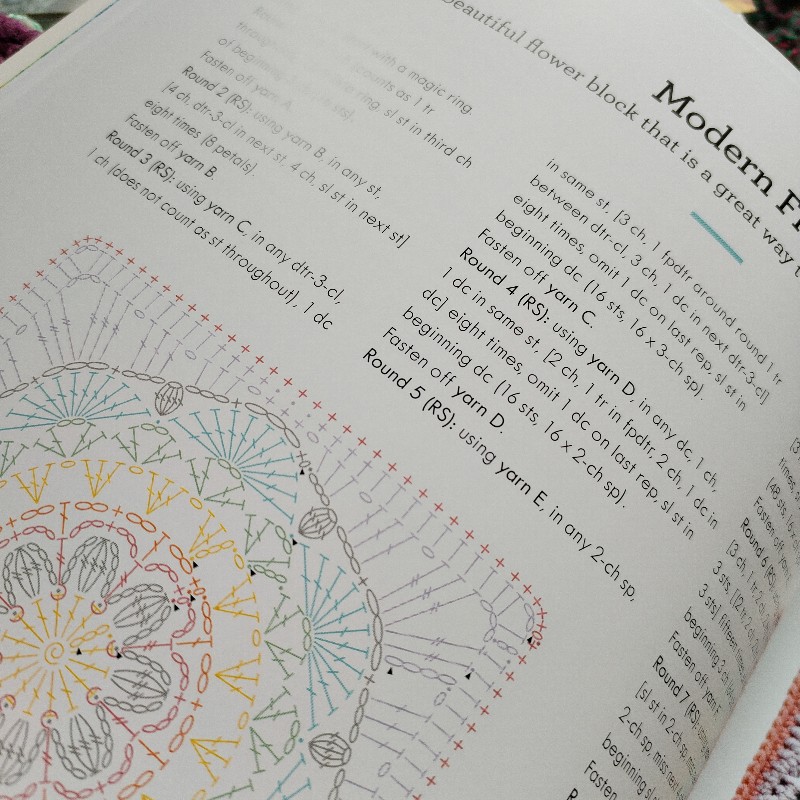 Modern
beautiful flower block that is a great way
with a magic ring.
counts as 1 tr
ring, sl st in third ch
of beginning
Fasten off yarn A.
Round 2 (RS): using yarn B, in any st,
[4 ch, dtr-3-cl in next st, 4 ch, sl st in next st]
eight times (8 petals).
Fasten off yarn B.
Round 3 (RS): using yarn C, in any dtr-3-cl,
1 ch (does not count as st throughout), 1 dc
in same st, [3 ch, 1 fpdtr around round 1 tr
between dtr-cl, 3 ch, 1 dc in next dtr-3-cl]
eight times, omit 1 dc on last rep, sl st in
beginning dc (16 sts, 16 x 3-ch sp).
Fasten off yarn C.
Round 4 (RS): using yarn D, in any dc, 1 ch,
1 dc in same st, [2 ch, 1 tr in fpdtr, 2 ch, 1 dc in
dc] eight times, omit 1 dc on last rep, sl st in
beginning dc (16 sts, 16 x 2-ch sp).
Fasten off yarn D.
Round 5 (RS): using yarn E, in any 2-ch sp,
[3
times,
(48 sts,
Fasten off
Round 6 (RS):
[3 ch, 1 tr
3 sts, [(2 tr, 2
3 sts] fifteen
beginning 3 ch
Fasten off yarn F.
Round 7 (RS):
[sl st in 2-ch sp,
2-ch sp, miss
beginning sl
Fasten
Round